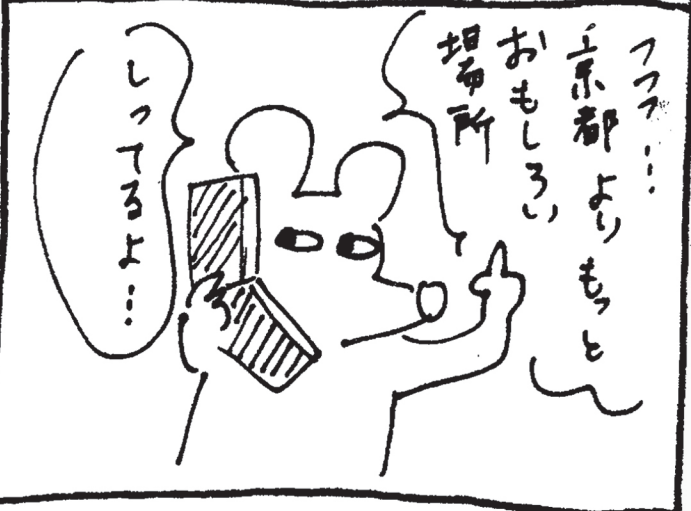 フフフ…
京都よりもっと
おもしろい
場所
しってるよ…